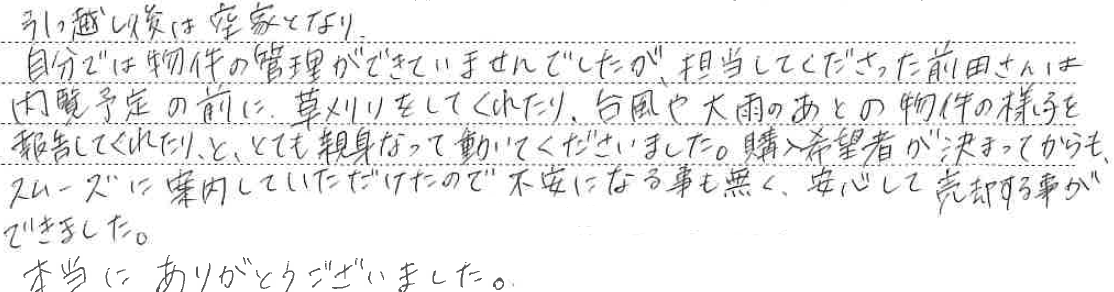 引っ越し後は空家となり、
自分では物件の管理ができていませんでしたが、担当してくださった前田さんは
内覧予定の前に、草刈りをしてくれたり、台風や大雨のあとの物件の様子を
報告してくれたり、と、とても親身なって動いてくださいました。購入希望者が決まってからも、
スムーズに案内していただけたので不安になる事も無く、安心して売却する事が
できました。
本当にありがとうございました。